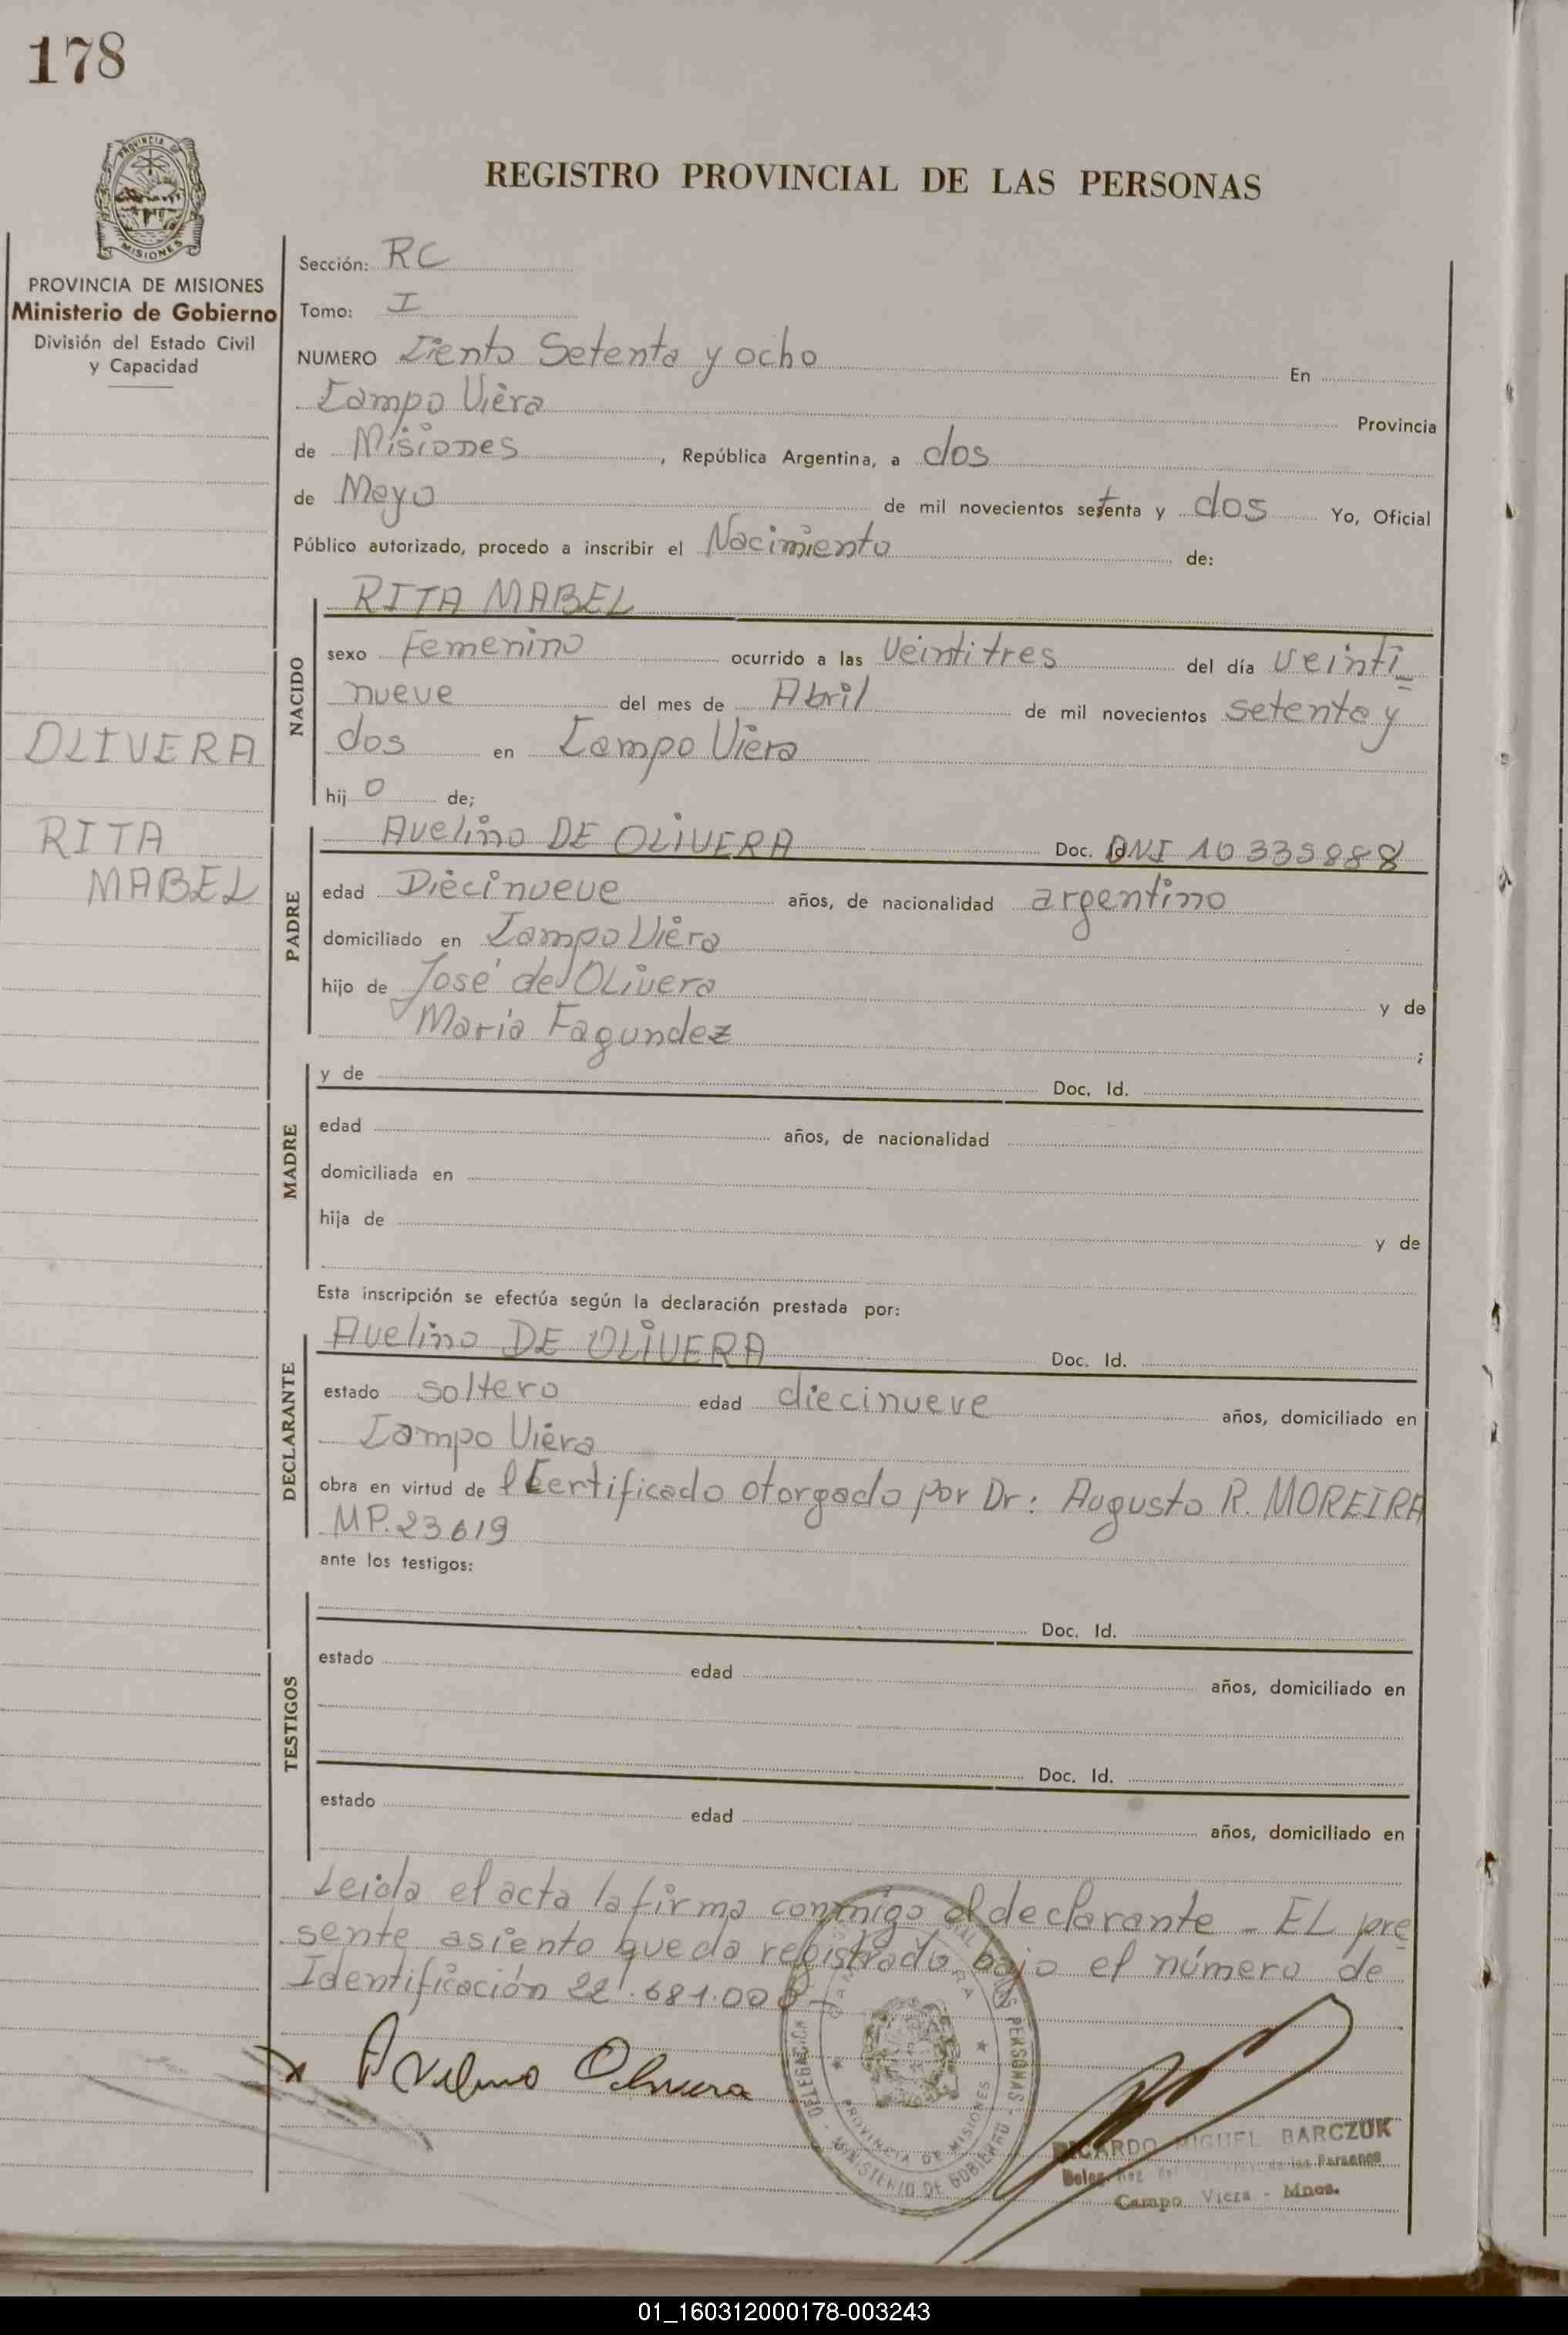 178
PROVINCIA DE
MISIONES
REGISTRO PROVINCIAL DE LAS PERSONAS
PROVINCIA DE MISIONES
Ministerio de Gobierno
División del Estado Civil
y Capacidad
OLIVERA
RITA
MABEL
Sección: RC
Tomo: I
NUMERO Ciento Setenta y ocho En
Campo Viera Provincia
de Misiones, República Argentina, a dos
de Mayo de mil novecientos setenta y dos Yo, Oficial
Público autorizado, procedo a inscribir el Nacimiento de:
NACIDO
RITA MABEL
sexo Femenino ocurrido a las veintitres del día veinti
nueve del mes de Abril de mil novecientos setenta y
dos en Campo Viera
hij o de;
PADRE
Avelino DE OLIVERA Doc. Id. DNI 10335888
edad Diecinueve años, de nacionalidad argentino
domiciliado en Campo Viera
hijo de José de Olivera y de
Maria Fagundez ;
MADRE
y de Doc. Id.
edad años, de nacionalidad
domiciliada en
hija de y de
Esta inscripción se efectúa según la declaración prestada por:
DECLARANTE
Avelino DE OLIVERA Doc. Id.
estado soltero edad diecinueve años, domiciliado en
Campo Viera
obra en virtud de l Certificado otorgado por Dr: Augusto R. MOREIRA
MP.23619
ante los testigos:
TESTIGOS
Doc. Id.
estado edad años, domiciliado en
Doc. Id.
estado edad años, domiciliado en
Leida el acta la firma conmigo el declarante - EL pre
sente asiento queda registrado bajo el número de
Identificación 22.681.008-
x Avelino Olivera
DELEGACION PERSONAS
PROVINCIA DE MISIONES
MINISTERIO DE GOBIERNO
RICARDO MIGUEL BARCZUK
Deleg. de las Personas
Campo Viera - Mnes.
01_160312000178-003243